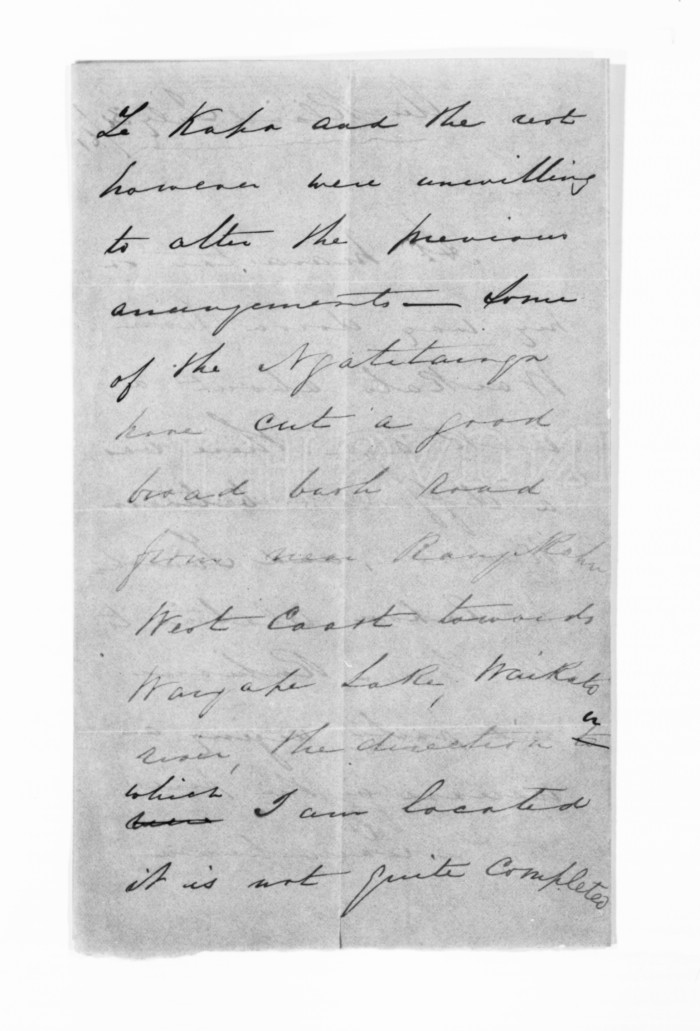 Te Kaha and the rest
however were unwilling
to alter the previous
arrangements — Some
of the Ngatitainga
have cut a good
broad bush road
from near, Rangikahu
West Coast towards
Wangape Lake, Waikato
river, the direction in
which I am located
it is not quite completed